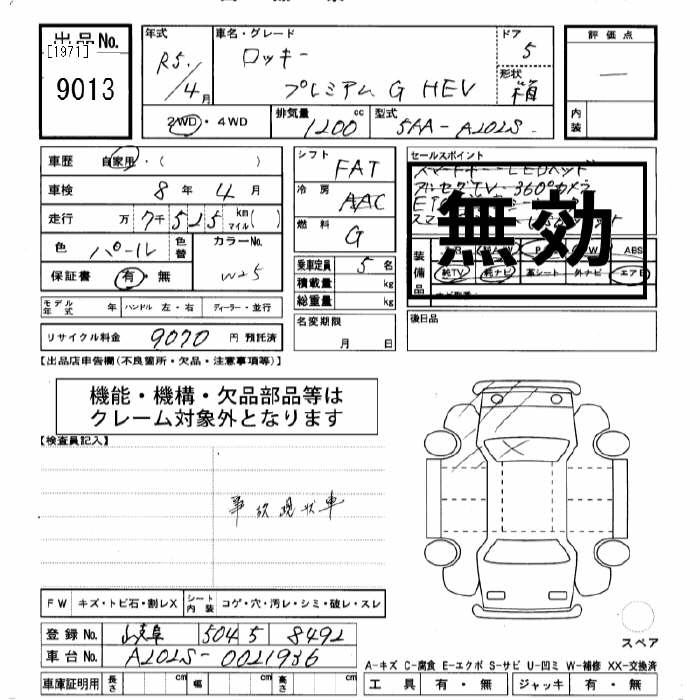 出品No.
[1971]
9013
年式
R5/4月
車名・グレード
ロッキー
プレミアム G HEV
ドア
5
形状
箱
評価点
―
内装
2WD・4WD
排気量 1200 cc
型式 5AA-A202S
車歴 自家用・( )
車検 8年 4月
走行 万 7千525 km マイル( )
色 パール 色替
カラーNo. W25
保証書 有・無
モデル年式 年 ハンドル 左・右 ディーラー・並行
リサイクル料金 9070 円 預託済
シフト FAT
冷房 AAC
燃料 G
乗車定員 5名
積載量 kg
総重量 kg
名変期限
月 日
セールスポイント
スマートキー LEDヘッド
フルセグTV 360°カメラ
無効
装備品
ABS
純TV 純ナビ 革シート 外ナビ エアB
後日品
【出品店申告欄(不良箇所・欠品・注意事項等)】
機能・機構・欠品部品等は
クレーム対象外となります
【検査員記入】
事故現状車
FW キズ・トビ石・割レX シート内装 コゲ・穴・汚レ・シミ・破レ・スレ
登録No. 岐阜 504 5 8492
車台No. A202S-0021936
車庫証明用 長さ cm 幅 cm 高さ cm
スペア
A-キズ C-腐食 E-エクボ S-サビ U-凹ミ W-補修 XX-交換済
工具 有・無 ジャッキ 有・無